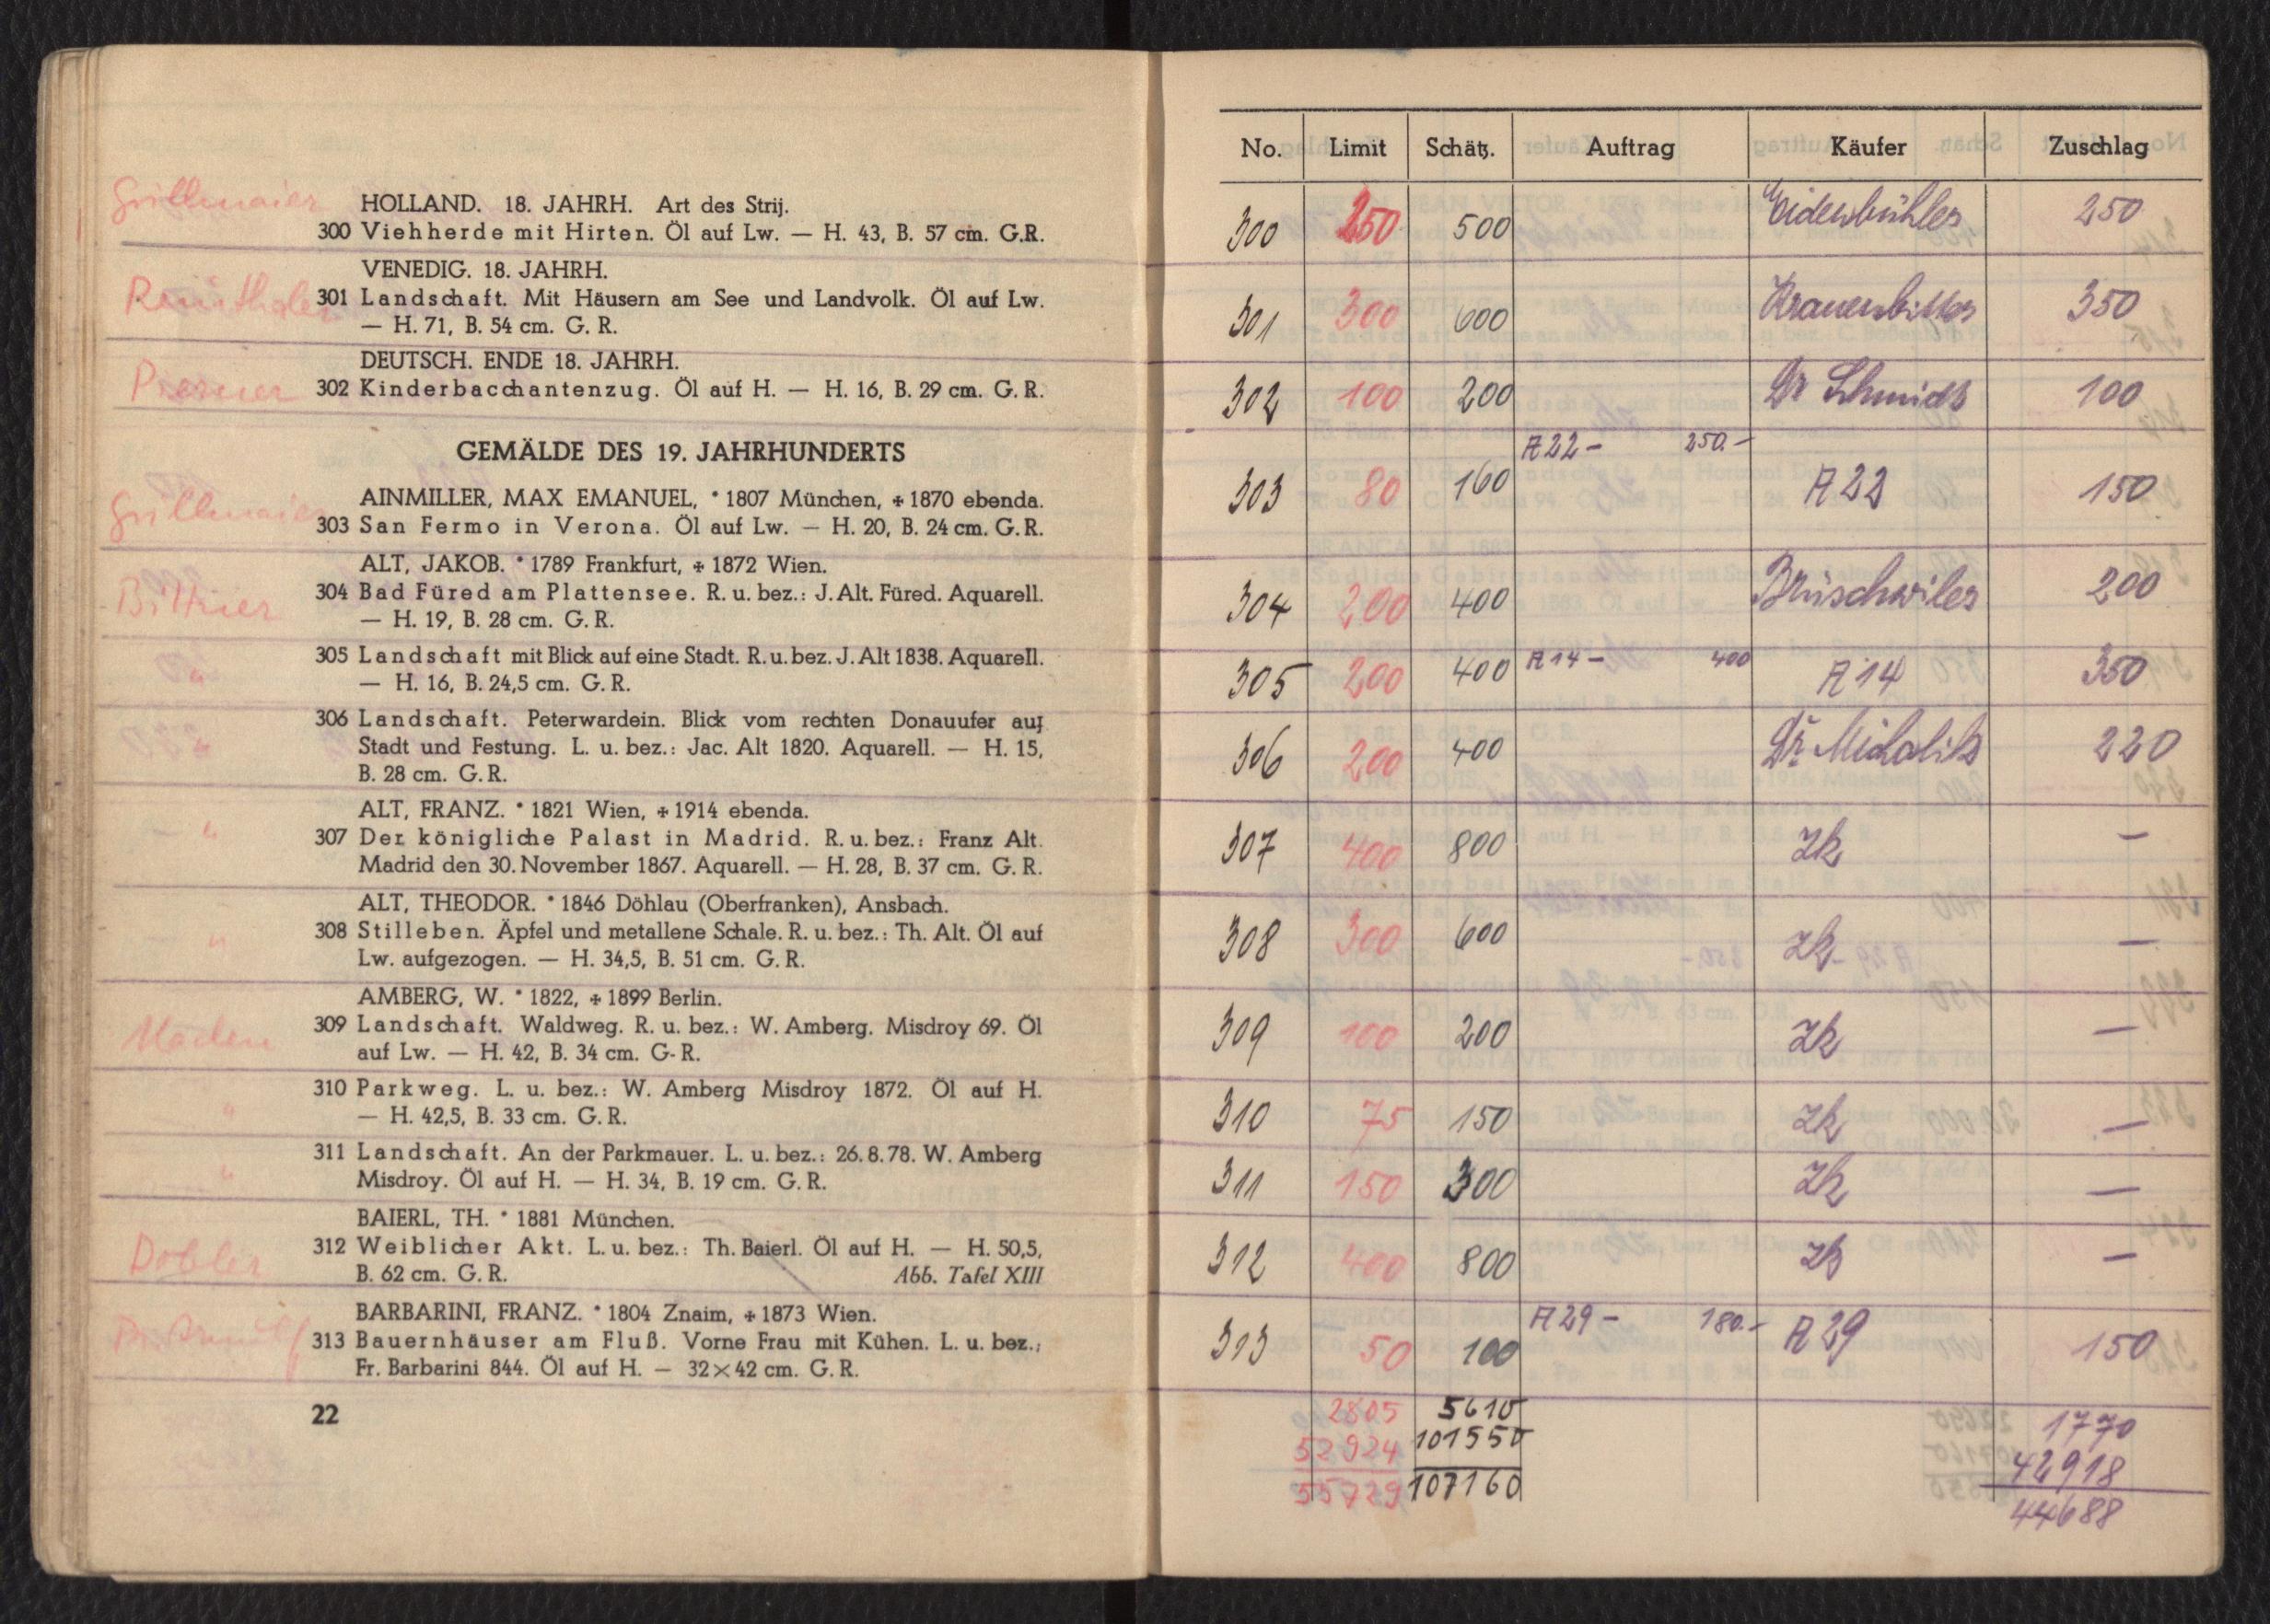 Grillmaier
HOLLAND. 18. JAHRH. Art des Strij.
300 Viehherde mit Hirten. Öl auf Lw. — H. 43, B. 57 cm. G.R.
VENEDIG. 18. JAHRH.
301 Landschaft. Mit Häusern am See und Landvolk. Öl auf Lw.
— H. 71, B. 54 cm. G. R.
DEUTSCH. ENDE 18. JAHRH.
302 Kinderbacchantenzug. Öl auf H. — H. 16, B. 29 cm. G. R.
GEMÄLDE DES 19. JAHRHUNDERTS
Grillmaier
AINMILLER, MAX EMANUEL, * 1807 München, + 1870 ebenda.
303 San Fermo in Verona. Öl auf Lw. — H. 20, B. 24 cm. G. R.
ALT, JAKOB. * 1789 Frankfurt, + 1872 Wien.
304 Bad Füred am Plattensee. R. u. bez.: J. Alt. Füred. Aquarell.
— H. 19, B. 28 cm. G. R.
" 305 Landschaft mit Blick auf eine Stadt. R. u. bez. J. Alt 1838. Aquarell.
— H. 16, B. 24,5 cm. G. R.
306 Landschaft. Peterwardein. Blick vom rechten Donauufer auf
" Stadt und Festung. L. u. bez.: Jac. Alt 1820. Aquarell. — H. 15,
B. 28 cm. G. R.
ALT, FRANZ. * 1821 Wien, + 1914 ebenda.
" 307 Der königliche Palast in Madrid. R. u. bez.: Franz Alt.
Madrid den 30. November 1867. Aquarell. — H. 28, B. 37 cm. G. R.
ALT, THEODOR. * 1846 Döhlau (Oberfranken), Ansbach.
" 308 Stilleben. Äpfel und metallene Schale. R. u. bez.: Th. Alt. Öl auf
Lw. aufgezogen. — H. 34,5, B. 51 cm. G. R.
AMBERG, W. * 1822, + 1899 Berlin.
309 Landschaft. Waldweg. R. u. bez.: W. Amberg. Misdroy 69. Öl
auf Lw. — H. 42, B. 34 cm. G- R.
" 310 Parkweg. L. u. bez.: W. Amberg Misdroy 1872. Öl auf H.
— H. 42,5, B. 33 cm. G. R.
" 311 Landschaft. An der Parkmauer. L. u. bez.: 26. 8. 78. W. Amberg
Misdroy. Öl auf H. — H. 34, B. 19 cm. G. R.
BAIERL, TH. * 1881 München.
Dobler 312 Weiblicher Akt. L. u. bez.: Th. Baierl. Öl auf H. — H. 50,5,
B. 62 cm. G. R. Abb. Tafel XIII
BARBARINI, FRANZ. * 1804 Znaim, + 1873 Wien.
313 Bauernhäuser am Fluß. Vorne Frau mit Kühen. L. u. bez.:
Fr. Barbarini 844. Öl auf H. — 32 × 42 cm. G. R.
22
No. Limit Schätz. Auftrag Käufer Zuschlag
300 250 500 Eidenbühler 250
301 300 600 350
302 100 200 Dr Schmidt 100
A 22 — 250.—
303 80 160 A 22 150
304 200 400 Brüschwiler 200
305 200 400 A 14 — 400 A 14 350
306 200 400 220
307 400 800 Zk —
308 300 600 Zk —
309 100 200 Zk —
310 75 150 Zk —
311 150 300 Zk —
312 400 800 Zk —
313 50 100 A 29 — 180.— A 29 150
2805 5610 1770
52924 101550 42918
55729 107160 44688